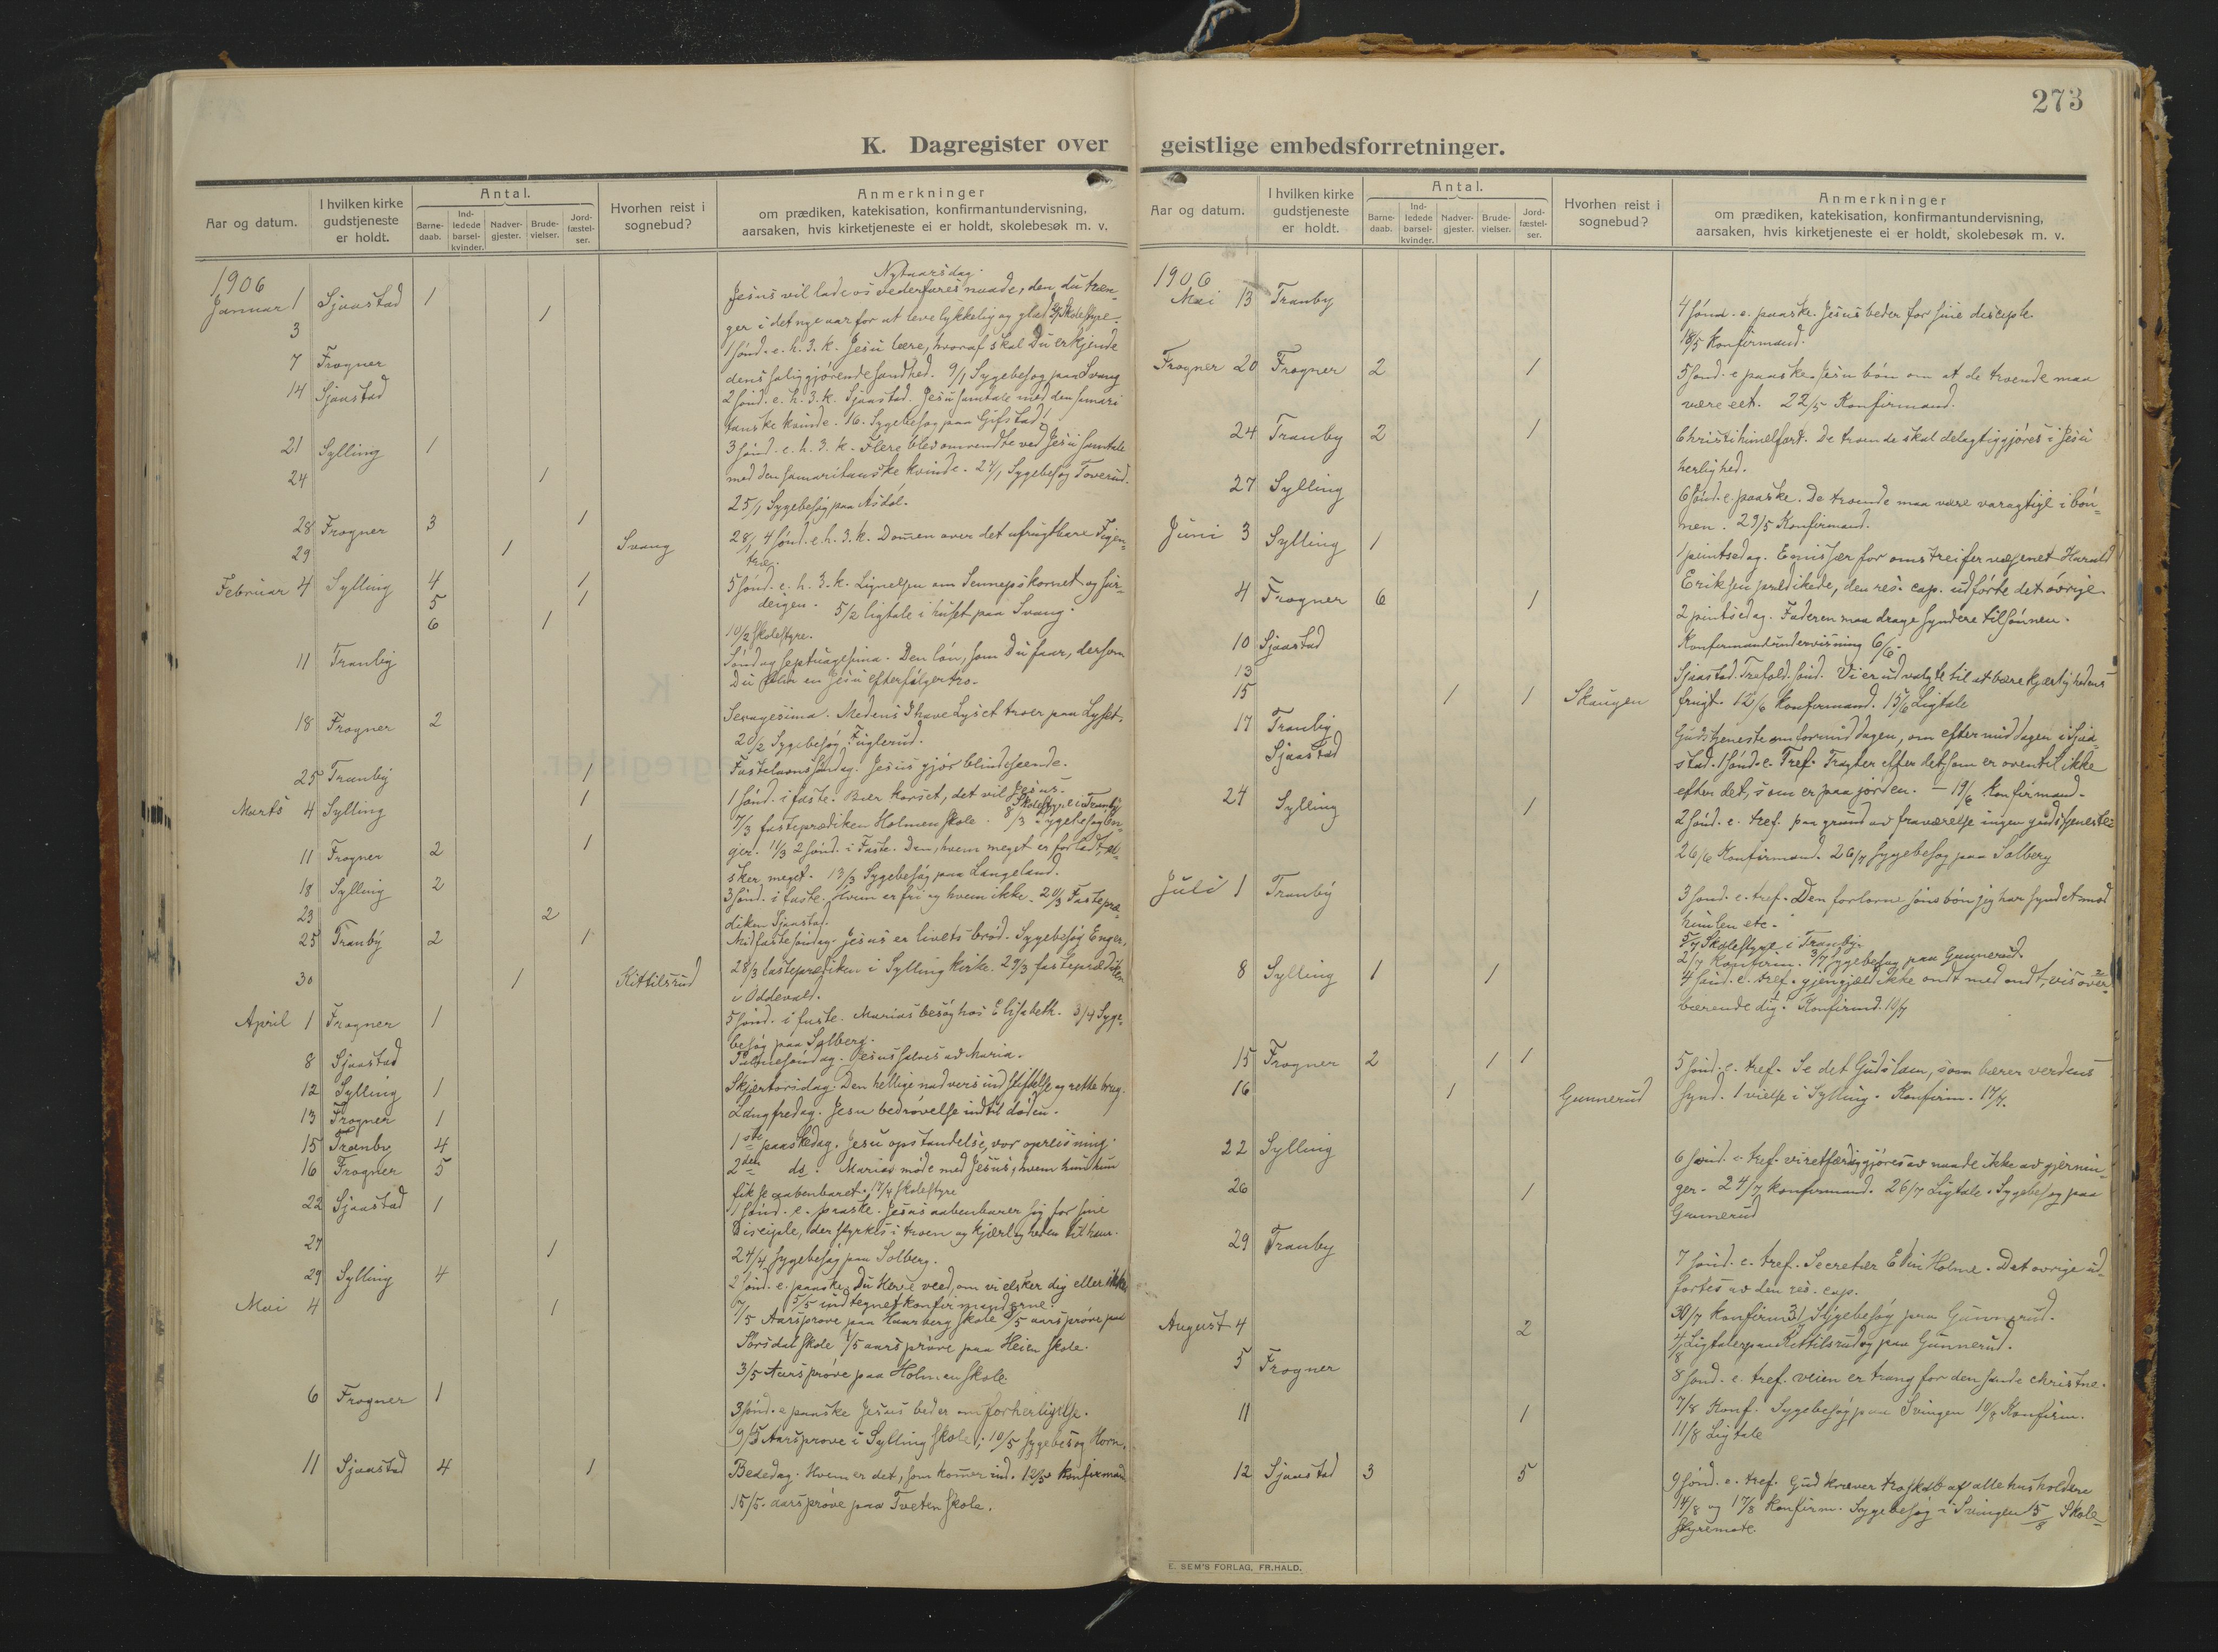 273
K. Dagregister over geistlige embedsforretninger.
Aar og datum. I hvilken kirke gudstjeneste er holdt. Antal. Barne-daab. Ind-ledede barsel-kvinder. Nadver-gjester. Brude-vielser. Jord-fæstel-ser. Hvorhen reist i sognebud? Anmerkninger om prædiken, katekisation, konfirmantundervisning, aarsaken, hvis kirketjeneste ei er holdt, skolebesøk m. v.
1906
Nytaarsdag.
Januar 1 Sjaastad 1 Jesus vil lade os vederfares naade, den du træn-
3 1 ger i det nye aar for at leve lykkelig og glad 3/1 Skolestyre.
1 sönd. e. h. 3. k. Jesu lære, hvoraf skal Du erkjende
7 Frogner dens saliggjörende sandhed. 9/1 Sygebesög paa Svang
14 Sjaastad 2 sönd. e. h. 3. k. Sjaastad. Jesu samtale med den samari
tanske kvinde. 16. Sygebesög paa Gifstad.
21 Sylling 1 3 sönd. e. h. 3. k. Flere blev omvendte ved Jesu samtale
24 1 med den samaritanske kvinde. 24/1 Sygebesög Toverud.
25/1 Sygebesög paa Asdöl.
28 Frogner 3 1 28/1 4 sönd. e. h. 3. k. Domen over det ufrugtbare Figen-
29 1 Svang træ.
Februar 4 Sylling 4 1 5 sönd. e. h. 3. k. Lignelsen om Sennepskornet og sur-
5 1 deigen. 5/2 ligtale i huset paa Svang.
6 1 10/2 Skolestyre.
11 Tranby Söndag Septuagesima. Den lön, som Du faar, dersom
Du er en Jesu efterfölger tro.
18 Frogner 2 Sexagesima. Medens I have Lyset troer paa Lyset.
20/2 Sygebesög Fuglerud.
25 Tranby 1 Fastelavnssöndag. Jesus gjör blinde seende.
Marts 4 Sylling 1 1 sönd. i faste. Bær korset, det vil Jesus.
7/3 fasteprædiken Holmen skole. 8/3 Skolestyre i Tranby Sygebesög En-
11 Frogner 2 1 ger. 11/3 2 sönd. i Faste. Den, hvem meget er forladt, el-
sker meget. 13/3 Sygebesög paa Langeland.
18 Sylling 2 3 sönd. i faste. Hvem er fri og hvem ikke. 20/3 Fastepræ-
23 2 diken Sjaastad.
25 Tranby 2 1 Midfastesöndag. Jesus er livets bröd. Sygebesög Enger.
30 1 Kittilsrud 28/3 fasteprædiken i Sylling kirke. 29/3 fasteprædiken
i Oddevald.
April 1 Frogner 1 5 sönd. i faste. Marias besög hos Elisabeth. 3/4 Syge-
besög paa Solberg.
8 Sjaastad Palmesöndag. Jesus salves av Maria.
12 Sylling 1 Skjærtorsdag. Den hellige nadvers indstiftelse og rette brug.
13 Frogner 1 Langfredag. Jesu bedrövelse indtil döden.
15 Tranby 4 1ste paaskedag. Jesu opstandelse, vor opreisning.
16 Frogner 5 2den ds. Marias möde med Jesus, hvem hun
fik se aabenbaret. 17/4 skolestyre
22 Sjaastad 1 1 sönd. e. paaske. Jesus aabenbarer sig for sine
Disciple, der styrkes i troen og kjærligheden til ham.
27 1 24/4 sygebesög paa Solberg.
29 Sylling 4 2 sönd. e. paaske. Du Herre veed, om vi elsker dig eller ikke
5/5 indtegnet konfirmanderne.
Mai 4 1 1/5 Aarsprøve paa Haarberg skole 5/5 aarsprøve paa
Sörsdal skole 1/5 aarsprøve paa Heien skole.
3/5 Aarsprøve paa Holmen skole.
6 Frogner 1 3 sönd. e. paaske Jesus beder om forherligelse.
9/5 Aarsprøve i Sylling skole, 10/5 sygebesög Horn.
11 Sjaastad 4 1 Bededag. Hvem er det, som komer ind. 12/5 konfirmand
15/5. aarsprøve paa Tveten skole.
Aar og datum. I hvilken kirke gudstjeneste er holdt. Antal. Barne-daab. Ind-ledede barsel-kvinder. Nadver-gjester. Brude-vielser. Jord-fæstel-ser. Hvorhen reist i sognebud? Anmerkninger om prædiken, katekisation, konfirmantundervisning, aarsaken, hvis kirketjeneste ei er holdt, skolebesøk m. v.
1906
Mai 13 Tranby 4 sönd. e. paaske. Jesus beder for sine disciple.
18/5 Konfirmand.
Frogner 20 Frogner 2 1 5 sönd. e paaske. Jesu bön om at de troende maa
være eet. 22/5 Konfirmand.
24 Tranby 2 1 Christi himelfart. De troende skal delagtiggjöres i Jesu
herlighed.
27 Sylling 6 sönd. e. paaske. De troende maa være varagtige i bön-
nen. 29/5 Konfirmand.
Juni 3 Sylling 1 1 pintsedag. Emissær for omstreifervæsenet Harald
Eriksen prædikede, den res. cap. udförte det övrige.
4 Frogner 6 1 2 pintsedag. Faderen maa drage syndere til sönnen.
Konfirmandundervisning 6/6.
10 Sjaastad Sjaastad. Trefold. sönd. Vi er udvalgte til at bære kjærlighedens
13
15 1 1 Skaugen frugt. 12/6 Konfirmand. 15/6 Ligtale
17 Tranby Gudstjeneste om formiddagen, om eftermiddagen i Sjaa-
Sjaastad stad. 1 sönd. e. Tref. Tragter efter det, som er oventil ikke
efter det, som er paa jorden. – 19/6 Konfirmand.
24 Sylling 1 2 sönd. e. tref. paa grund av fraværelse ingen gudstjeneste
26/6 Konfirmand. 26/7 Sygebesög paa Solberg
Juli 1 Tranby 3 sönd. e. tref. Den forlorne söns bön jeg har syndet mod
himlen etc.
5/7 Skolestyre i Tranby.
2/7 Konfirm. 3/7 sygebesög paa Gunnerud.
8 Sylling 1 1 4 sönd. e. tref. gjengjæld ikke ondt med ondt, vis over-
bærende dig. Konfirmd. 10/7
15 Frogner 2 1 1 5 sönd. e. tref. Se det Guds lam, som bærer verdens
16 1 Gunnerud synd. 1 vielse i Sylling. Konfirm. 17/7.
22 Sylling 6 sönd. e. tref. vi retfærdiggjöres av naade ikke av gjernin-
26 1 ger. 24/7 Konfirmand. 26/7 Ligtale. Sygebesög paa
Gunnerud
29 Tranby 7 sönd. e. tref. Secretær Edin Holme. Det övrige ud-
förtes av den res. cap.
30/7 Konfirm 31 Sygebesög paa Gunnerud.
August 4 2 4/8 Ligtaler paa Kittilsrud og paa Gunnerud.
5 Frogner 8 sönd. e. tref. veien er trang for den sande christne.
7/8 Konf. Sygebesög paa Svingen 10/8 Konfirm.
11 1 11/8 Ligtale
12 Sjaastad 3 5 9 sönd. e. tref. Gud kræver troskab af alle husholdere
14/8 og 17/8 Konfirm. Sygebesög i Svingen 15/8 Skole-
styremøte
E. SEM'S FORLAG, FR.HALD.